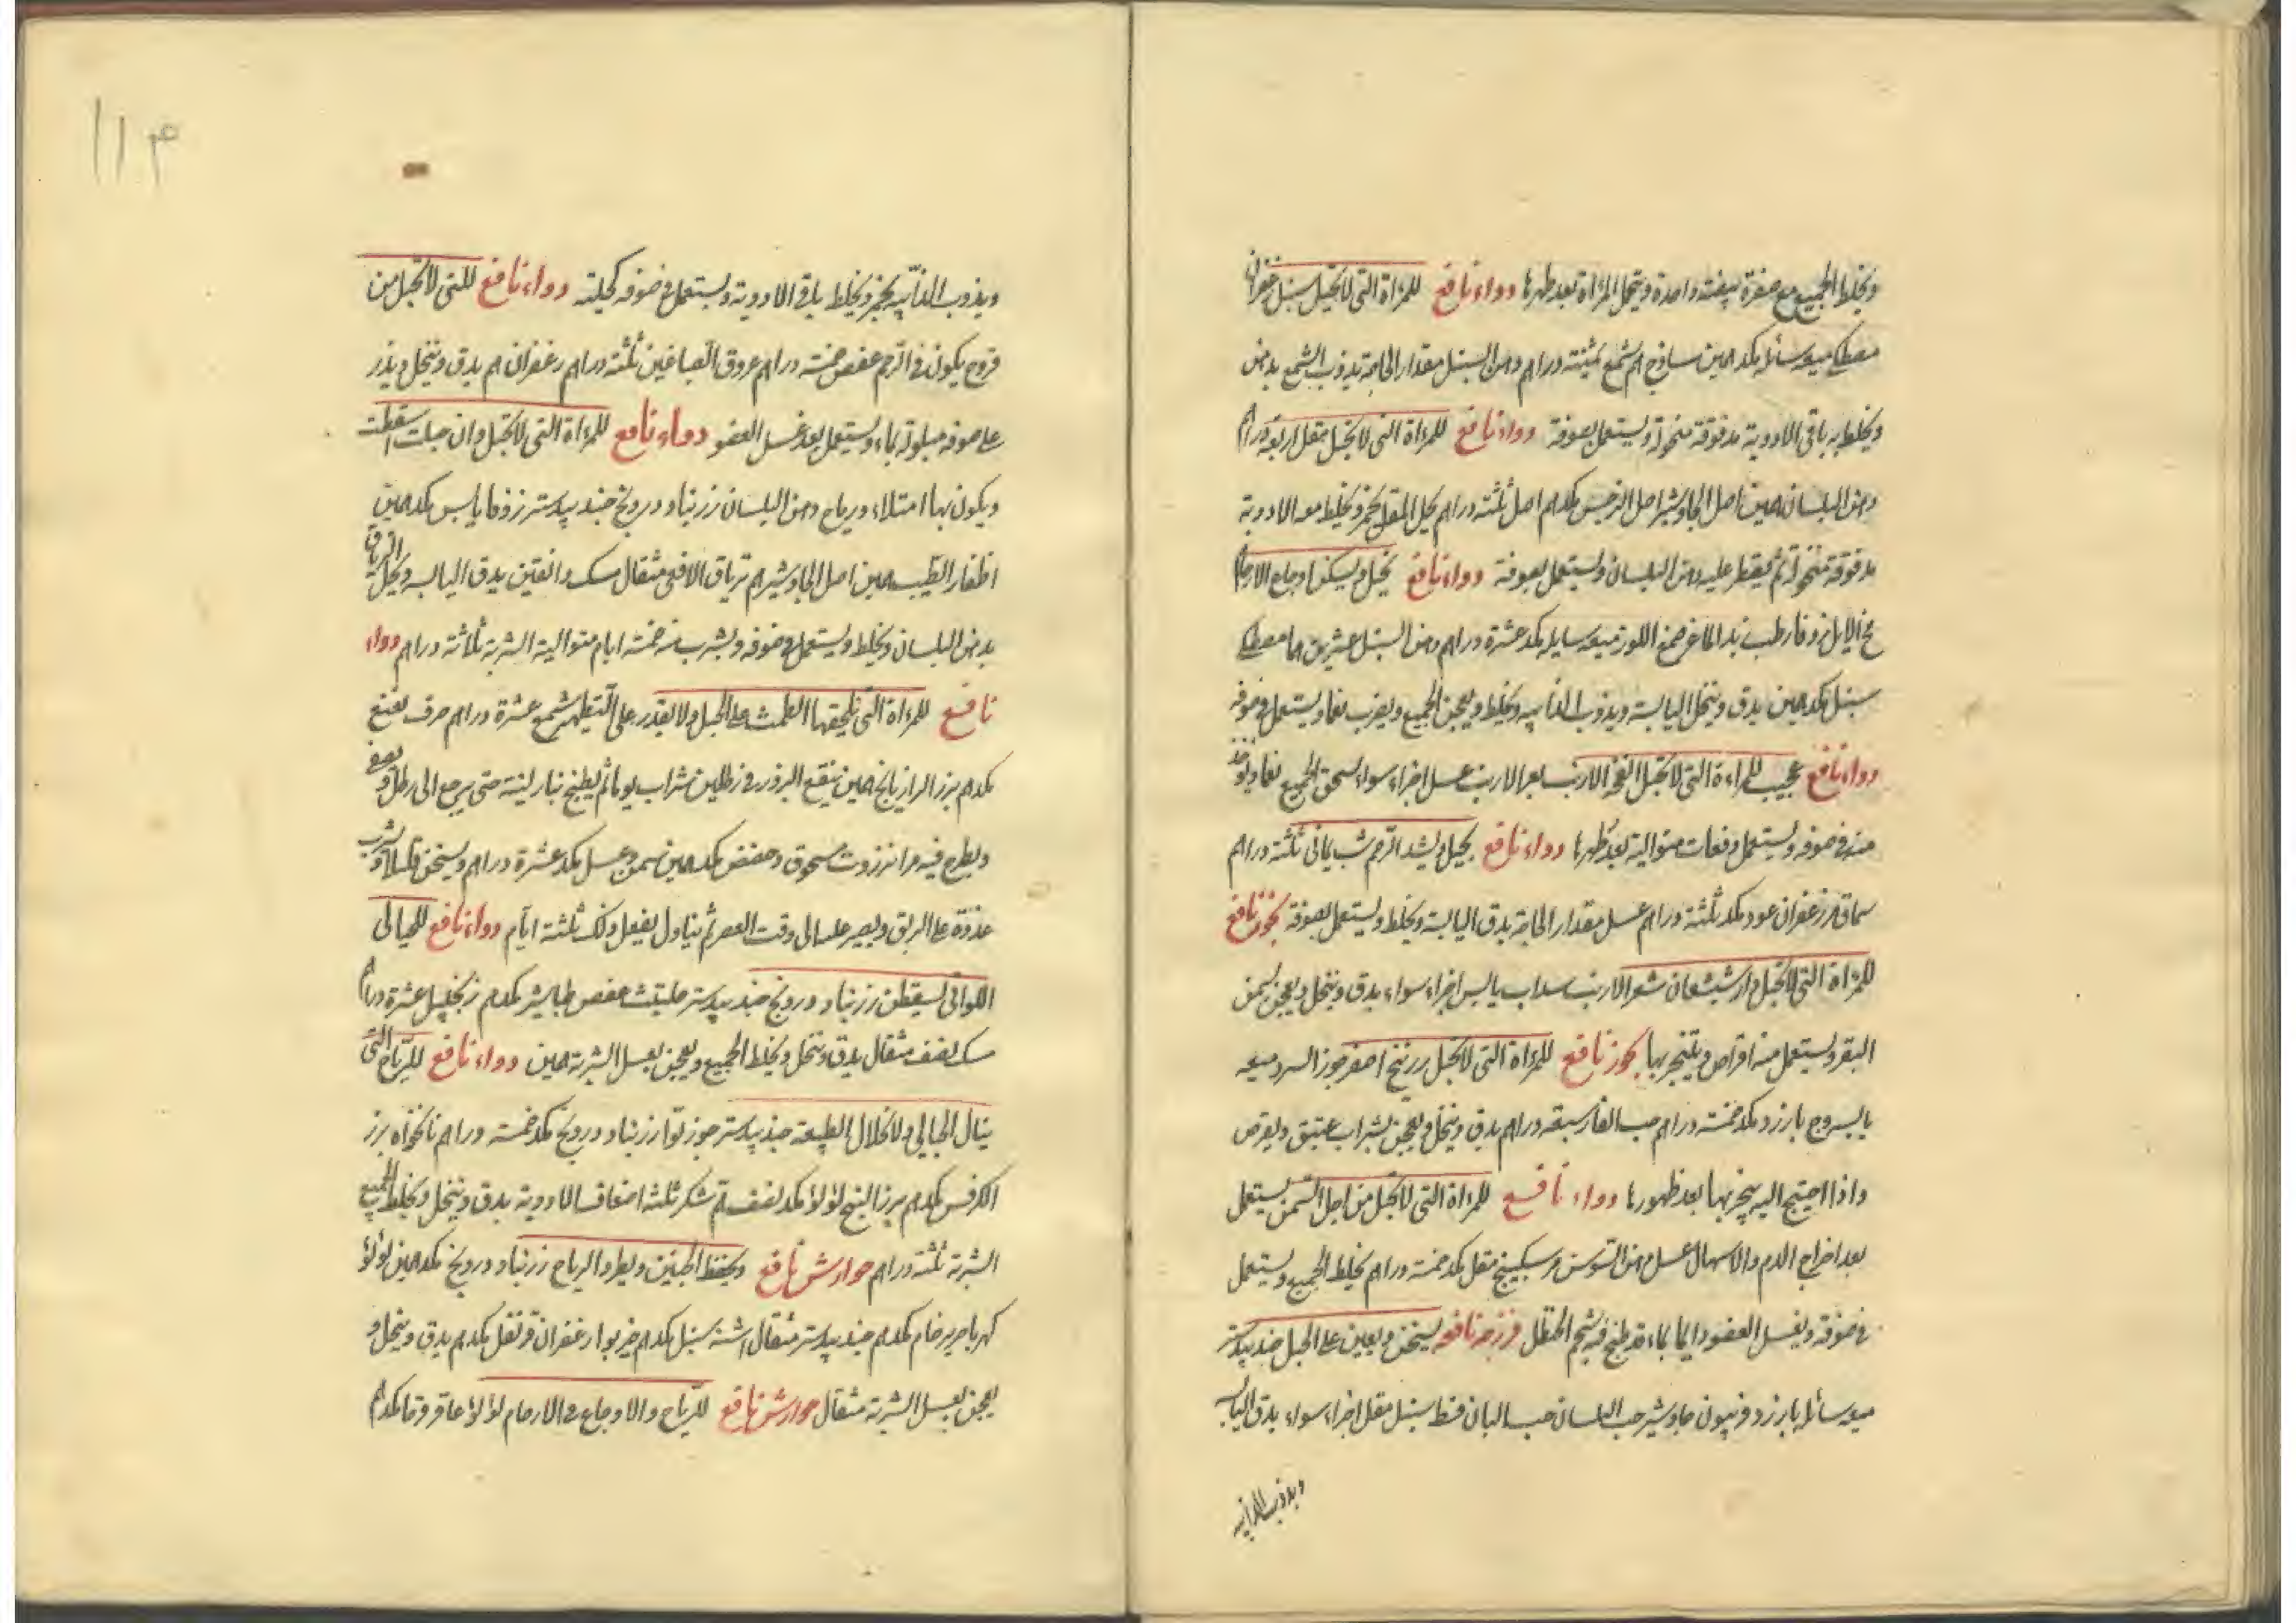 ويخلط الجميع مع صفرة بيضة واحدة وتحمل المرءاة بعد طهرها دواء نافع للمرءاة التى لاتحبل سنبل زعفران
مصطكى ميعه سائله مكد همين ساذج هم شمع ثمنية دراهم دهن السنبل مقدار الحاجة يذوب الشمع بدهن
ويخلط به باقى الادوية مدقوقة منخولة ويستعمل بصوفة دواء نافع للمرءاة التى لاتحبل مقل اربعة دراهم
دهن البلسان همين اصل الجاوشير اصل النرجس مكدهم اصل ثلثة دراهم يحل المقل بخمر ويخلط معه الادوية
مدقوقة منخولة ثم يقطر عليه دهن البلسان ويستعمل بصوفة دواء نافع يحبل ويسكن اوجاع الارحام
مخ الايل زوفا رطب زبد الماعز صمغ اللوز ميعه سايله مكد عشرة دراهم دهن السنبل عشرين هما مصطكى
سنبل مكد همين يدق وينخل اليابسة ويذوب الذائبه ويخلط ويعجن الجميع ويضرب نعما ويستعمل فى صوفه
دواء نافع عجيب للمراءة التى لاتحبل انفحة الارنب بعر الارنب عسل اجزاء سواء يسحق الجميع نعما ويوخذ
منه فى صوفه ويستعمل دفعات متوالية بعد طهرها دواء نافع يحبل ويشد الرحم شب يمانى ثلثة دراهم
سماق هم زعفران عود مكد ثلثة دراهم عسل مقدار الحاجة يدق اليابسة ويخلط ويستعمل بصوفة بخور نافع
للمرءاة التى لاتحبل دارشيشعان شعر الارنب سداب يابس اجزاء سواء يدق وينخل ويعجن بسمن
البقر ويستعمل منه اقراص ويتبخر بها بخور نافع للمرءاة التى لاتحبل زرنيخ اصفر جوز السرو ميعه
يابسه وج بارزد مكد خمسة دراهم حب الغار سبعة دراهم يدق وينخل ويعجن بشراب عتيق ويقرص
واذا احتيج اليه يتبخر بها بعد طهورها دواء نافع للمرءاة التى لاتحبل من اجل السمن يستعمل
بعد اخراج الدم والاسهال عسل دهن السوسن سكبينج مقل مكد خمسة دراهم يخلط الجميع ويستعمل
فى صوفة ويغسل العضو دايما بماء قد طبخ فيه شحم الحنظل فرزجه نافعه يسخن ويعين على الحبل جندبيدستر
ميعه سائله بارزد فربيون جاوشير حب البلسان حب البان قسط سنبل مقل اجزاء سواء يدق اليابسه
ويذوب الذائبه
۱۱۴
ويذوب الذائبه بخمر ويخلط باقى الادوية ويستعمل فى صوفه كحيلته دواء نافع للتى لاتحبل من
قروح يكون فى الرحم عفص خمسة دراهم عروق الصباغين ثلثة دراهم زعفران هم يدق وينخل ويذر
على صوفه مبلولة بماء ويستعمل بعد غسل العضو دواء نافع للمرءاة التى لاتحبل وان حبلت اسقطت
ويكون بها امتلاء ورياح دهن البلسان زرنباد درونج جندبيدستر زوفا يابس مكد همين
اظفار الطيب همين اصل الجاوشير هم ترياق الافعى مثقال مسك دانقين يدق اليابسه ويحل الترياق
بدهن البلسان ويخلط ويستعمل فى صوفه ويشرب منه خمسة ايام متوالية الشربة ثلاثة دراهم دواء
نافع للمرءاة التى يلحقها الطمث على الحبل ولايقدر على التطهر شمع عشرة دراهم حرف نعنع
مكدهم بزر الرازيانج همين ينقع البزور فى رطلين شراب يوما ثم يطبخ بنار لينة حتى يرجع الى رطل ويصفى
ويطرح فيه مر انزروت مسحوق وحضض مكد همين سمن وعسل مكد عشرة دراهم ويسخن قليلا ويشرب
غدوة على الريق ويصبر عليه الى وقت العصر ثم يتناول يفعل ذلك ثلثة ايام دواء نافع للحبالى
اللواتى يسقطن زرنباد درونج جندبيدستر حلتيت عفص طباشير مكدهم زنجبيل عشرة دراهم
مسك نصف مثقال يدق وينخل ويخلط الجميع ويعجن بعسل الشربة همين دواء نافع للرياح التى
ينال الحبالى ولانحلال الطبيعة جندبيدستر جوزبوا زرنباد درونج مكد خمسة دراهم نانخواه بزر
الكرفس مكدهم بزر البنج لؤلؤ مكد نصف هم سكر ثلثة اضعاف الادوية يدق وينخل ويخلط الجميع
الشربة ثلثة دراهم جوارش نافع ويحفظ الجنين ويطرد الرياح زرنباد درونج مكد همين لؤلؤ
كهربا حرير خام مكدهم جندبيدستر مثقال اشنه سنبل مكدهم خيربوا زعفران قرنفل مكدهم يدق وينخل و
يعجن بعسل الشربة مثقال جوارش نافع للرياح والاوجاع فى الارحام لؤلؤ عاقرقرحا مكدهم